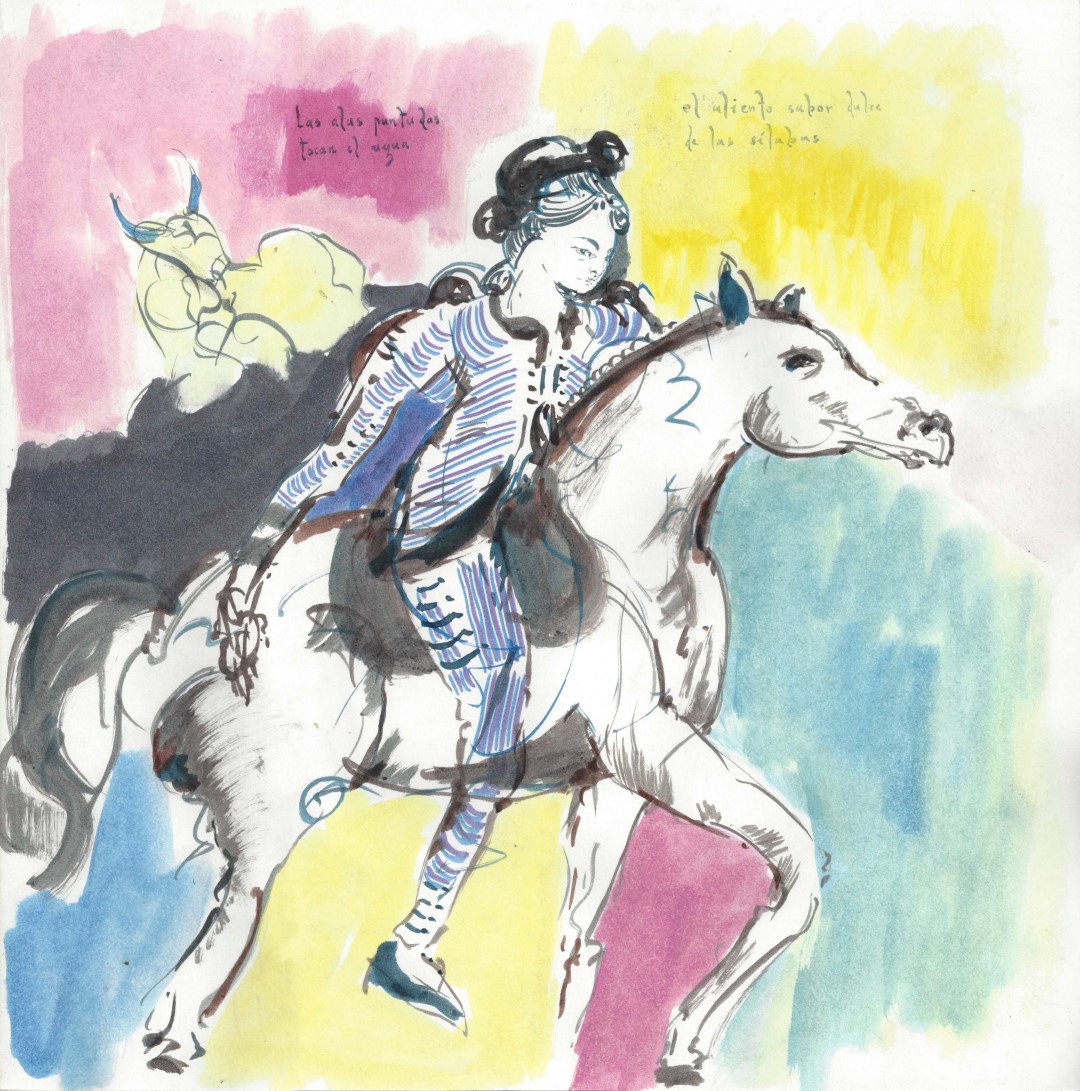 Las alas puntudas
tocan el agua
el aliento sabor dulce
de las sílabas